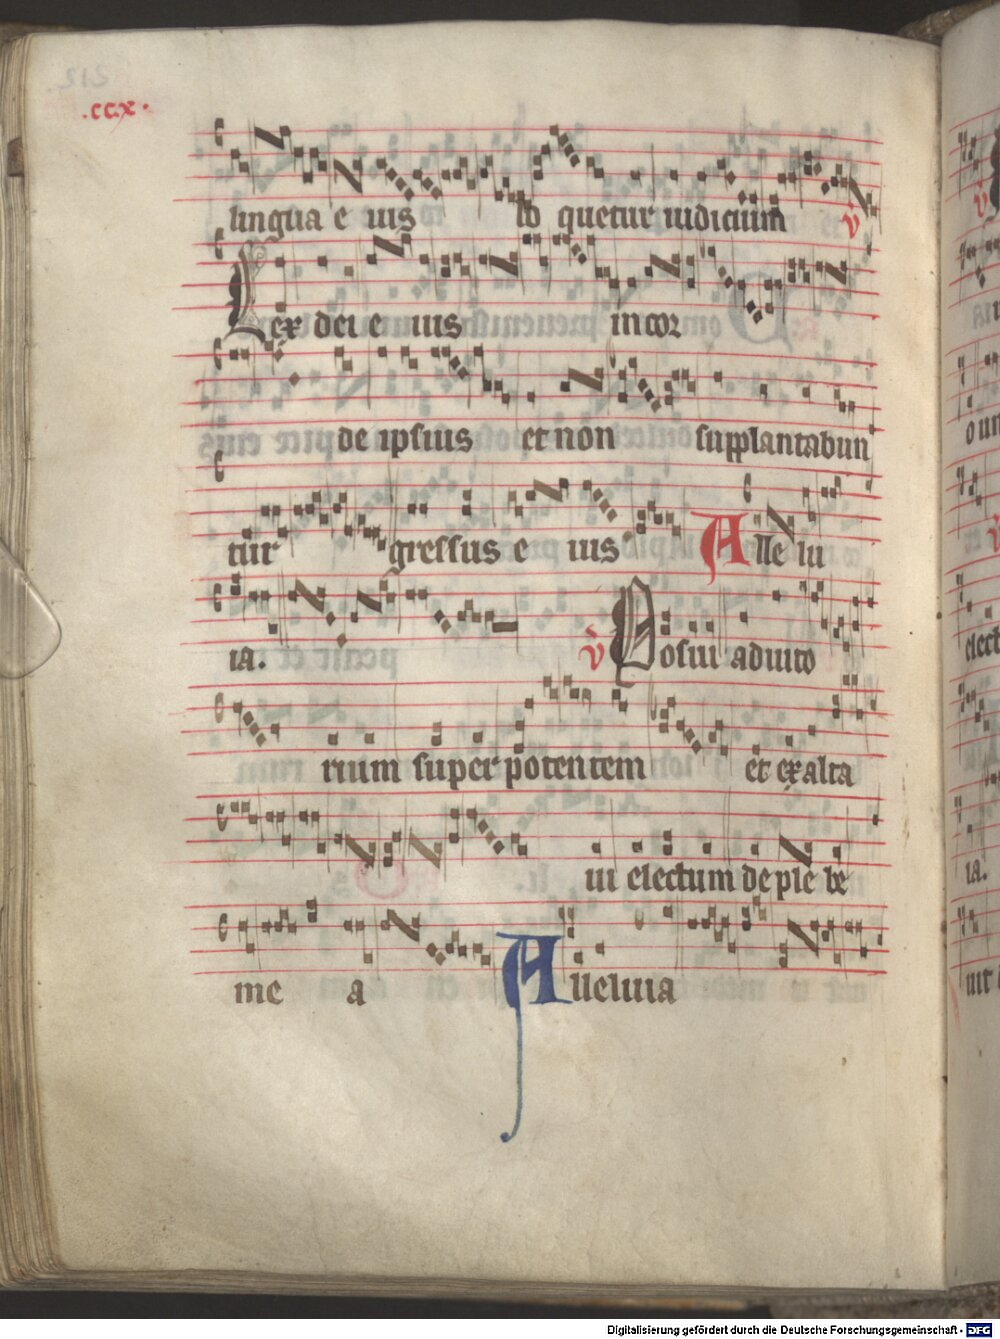 .ccx.
lingua e ius lo quetur iudicium v̇
Lex dei e ius in cor
de ipsius et non supplantabun
tur gressus e ius Alle lu
ia. v̇ Posui adiuto
rium super potentem et exalta
ui electum de ple be
me a Alleluia
Digitalisierung gefördert durch die Deutsche Forschungsgemeinschaft - DFG